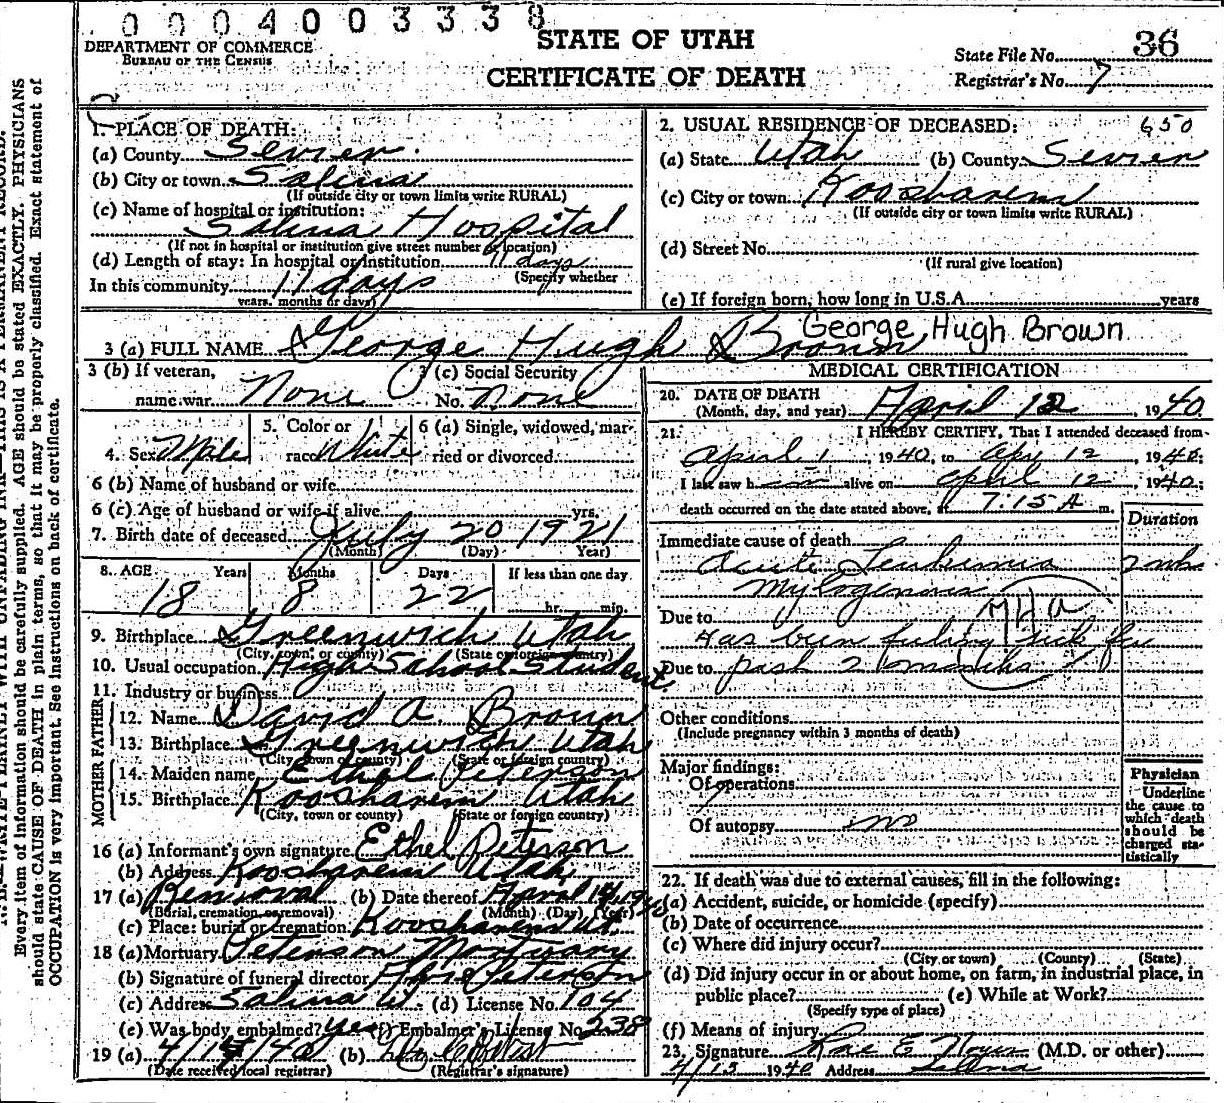 0004003338
DEPARTMENT OF COMMERCE
BUREAU OF THE CENSUS
STATE OF UTAH
CERTIFICATE OF DEATH
State File No. 36
Registrar's No. 7
Every item of information should be carefully supplied. AGE should be stated EXACTLY. PHYSICIANS
should state CAUSE OF DEATH in plain terms, so that it may be properly classified. Exact statement of
OCCUPATION is very important. See instructions on back of certificate.
1. PLACE OF DEATH:
(a) County Sevier
(b) City or town Salina
(If outside city or town limits write RURAL)
(c) Name of hospital or institution:
Salina Hospital
(If not in hospital or institution give street number or location)
(d) Length of stay: In hospital or institution 11 days
(Specify whether
In this community 11 days
years, months or days)
2. USUAL RESIDENCE OF DECEASED: 650
(a) State Utah (b) County Sevier
(c) City or town Koosharem
(If outside city or town limits write RURAL)
(d) Street No.
(If rural give location)
(e) If foreign born, how long in U.S.A. years
3 (a) FULL NAME George Hugh Brown George Hugh Brown
3 (b) If veteran, name war None
3 (c) Social Security No. None
4. Sex Male
5. Color or race White
6 (a) Single, widowed, married or divorced
6 (b) Name of husband or wife
6 (c) Age of husband or wife if alive yrs.
7. Birth date of deceased July 20 1921
(Month) (Day) Year)
8. AGE Years Months Days If less than one day
18 8 22 hr. min.
9. Birthplace Greenwich Utah
(City, town, or county) (State or foreign country)
10. Usual occupation High School Student
11. Industry or business
FATHER
12. Name David A. Brown
13. Birthplace Greenwich Utah
(City, town or county) (State or foreign country)
MOTHER
14. Maiden name Ethel Peterson
15. Birthplace Koosharem Utah
(City, town or county) (State or foreign country)
16 (a) Informant's own signature Ethel Peterson
(b) Address Koosharem Utah
17 (a) Removal (b) Date thereof April 1940
(Burial, cremation, or removal) (Month) (Day) (Year)
(c) Place: burial or cremation Koosharem Ut.
18 (a) Mortuary Peterson Mortuary
(b) Signature of funeral director Peterson
(c) Address Salina Ut. (d) License No. 104
(e) Was body embalmed? yes (f) Embalmer's License No. 238
19 (a) 4/14/40 (b)
(Date received local registrar) (Registrar's signature)
MEDICAL CERTIFICATION
20. DATE OF DEATH
(Month, day, and year) April 12, 1940
21. I HEREBY CERTIFY, That I attended deceased from
April 1, 1940, to Apr 12, 1940;
I last saw him alive on April 12, 1940;
death occurred on the date stated above, at 7.15 A m.
Duration
Immediate cause of death
Acute Leukemia 2 mhs
Mylogenous
Due to
Has been feeling sick for
Due to past 2 months
Other conditions
(Include pregnancy within 3 months of death)
Major findings:
Of operations
Of autopsy no
Physician
Underline
the cause to
which death
should be
charged sta-
tistically
22. If death was due to external causes, fill in the following:
(a) Accident, suicide, or homicide (specify)
(b) Date of occurrence
(c) Where did injury occur?
(City or town) (County) (State)
(d) Did injury occur in or about home, on farm, in industrial place, in
public place? (e) While at Work?
(Specify type of place)
(f) Means of injury
23. Signature Rae E Noyes (M.D. or other)
4/13 1940 Address Salina